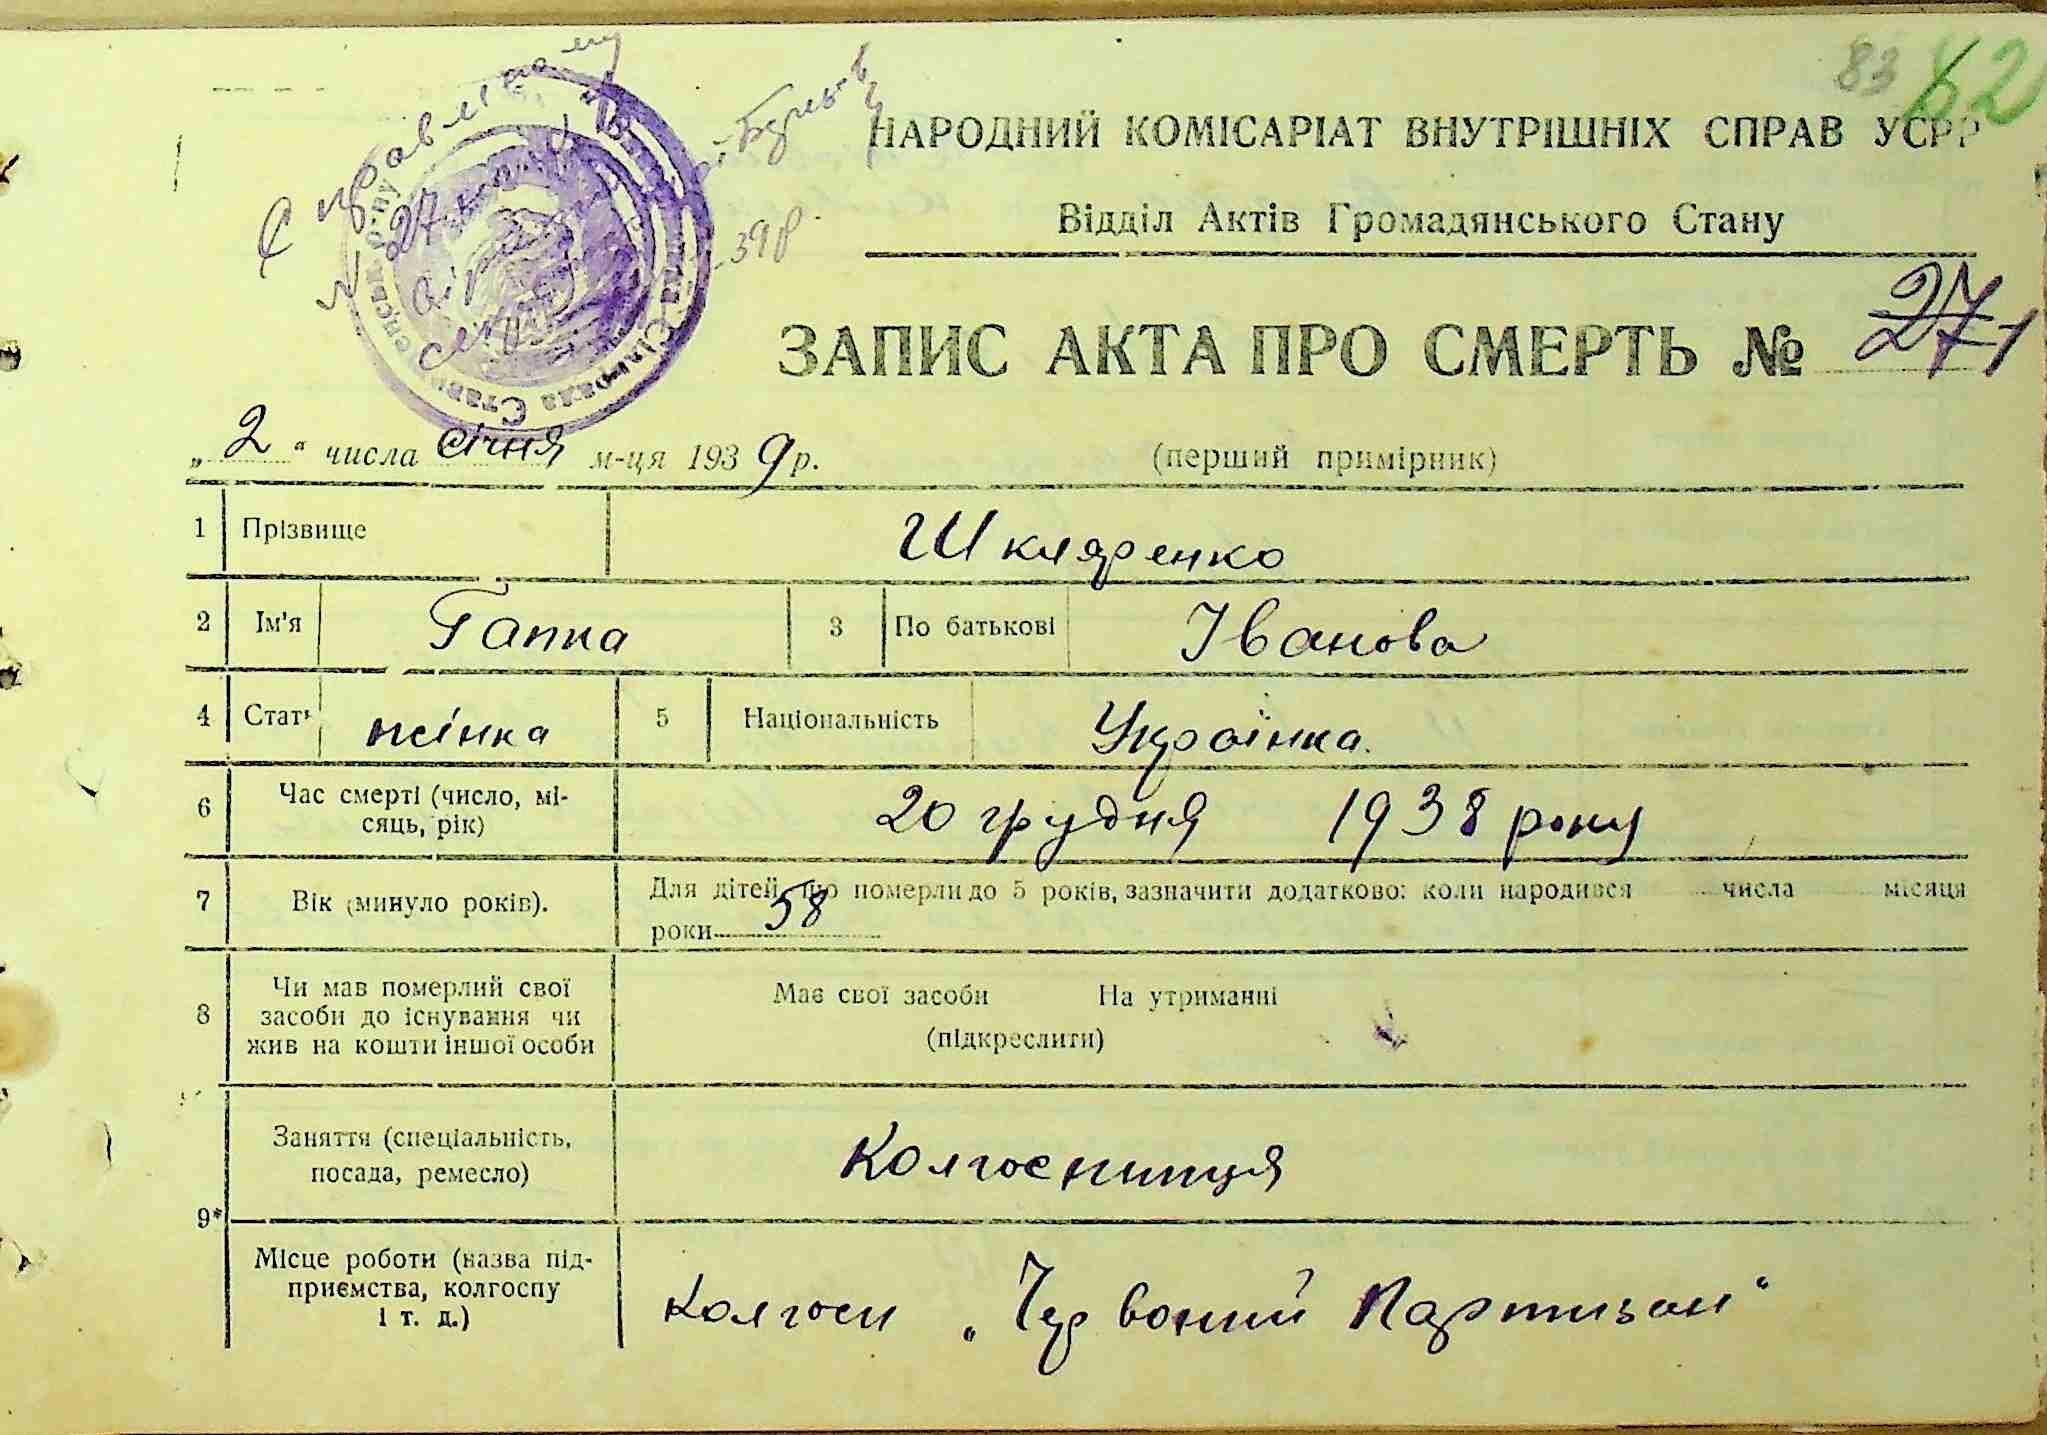 83 62
НАРОДНИЙ КОМІСАРІАТ ВНУТРІШНІХ СПРАВ УСРР
Відділ Актів Громадянського Стану
ЗАПИС АКТА ПРО СМЕРТЬ № 27 1
„2“ числа січня м-ця 1939 р. (перший примірник)
1 Прізвище Шкляренко
2 Ім'я Гапка 3 По батькові Іванова
4 Стать жінка 5 Національність Українка.
6 Час смерті (число, мі-
сяць, рік) 20 грудня 1938 року
7 Вік (минуло років). Для дітей, що померли до 5 років, зазначити додатково: коли народився числа місяця
роки 58
8 Чи мав померлий свої
засоби до існування чи
жив на кошти іншої особи
Має свої засоби На утриманні
(підкреслити)
9* Заняття (спеціальність,
посада, ремесло) Колгоспниця
Місце роботи (назва під-
приємства, колгоспу
і т. д.) Колгосп „Червоний Партизан“